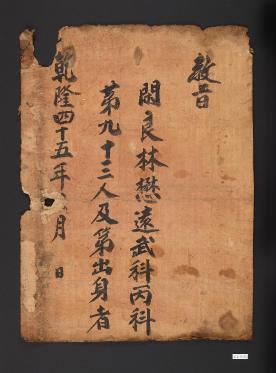 教旨
閑良林懋遠武科丙科
第九十三人及第出身者
乾隆四十五年 月 日